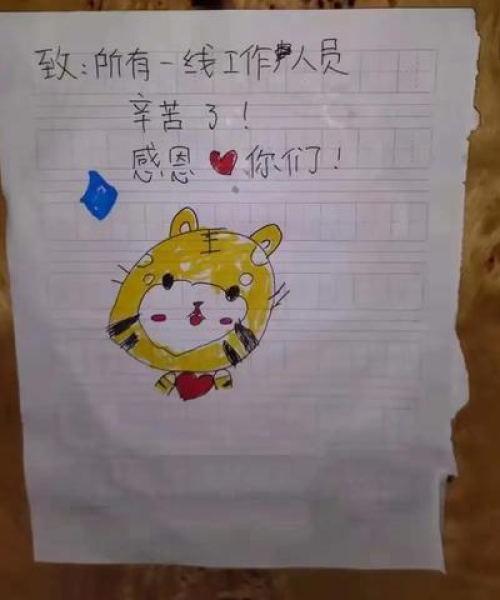 致:所有一线工作人员
辛苦了!
感恩你们了!